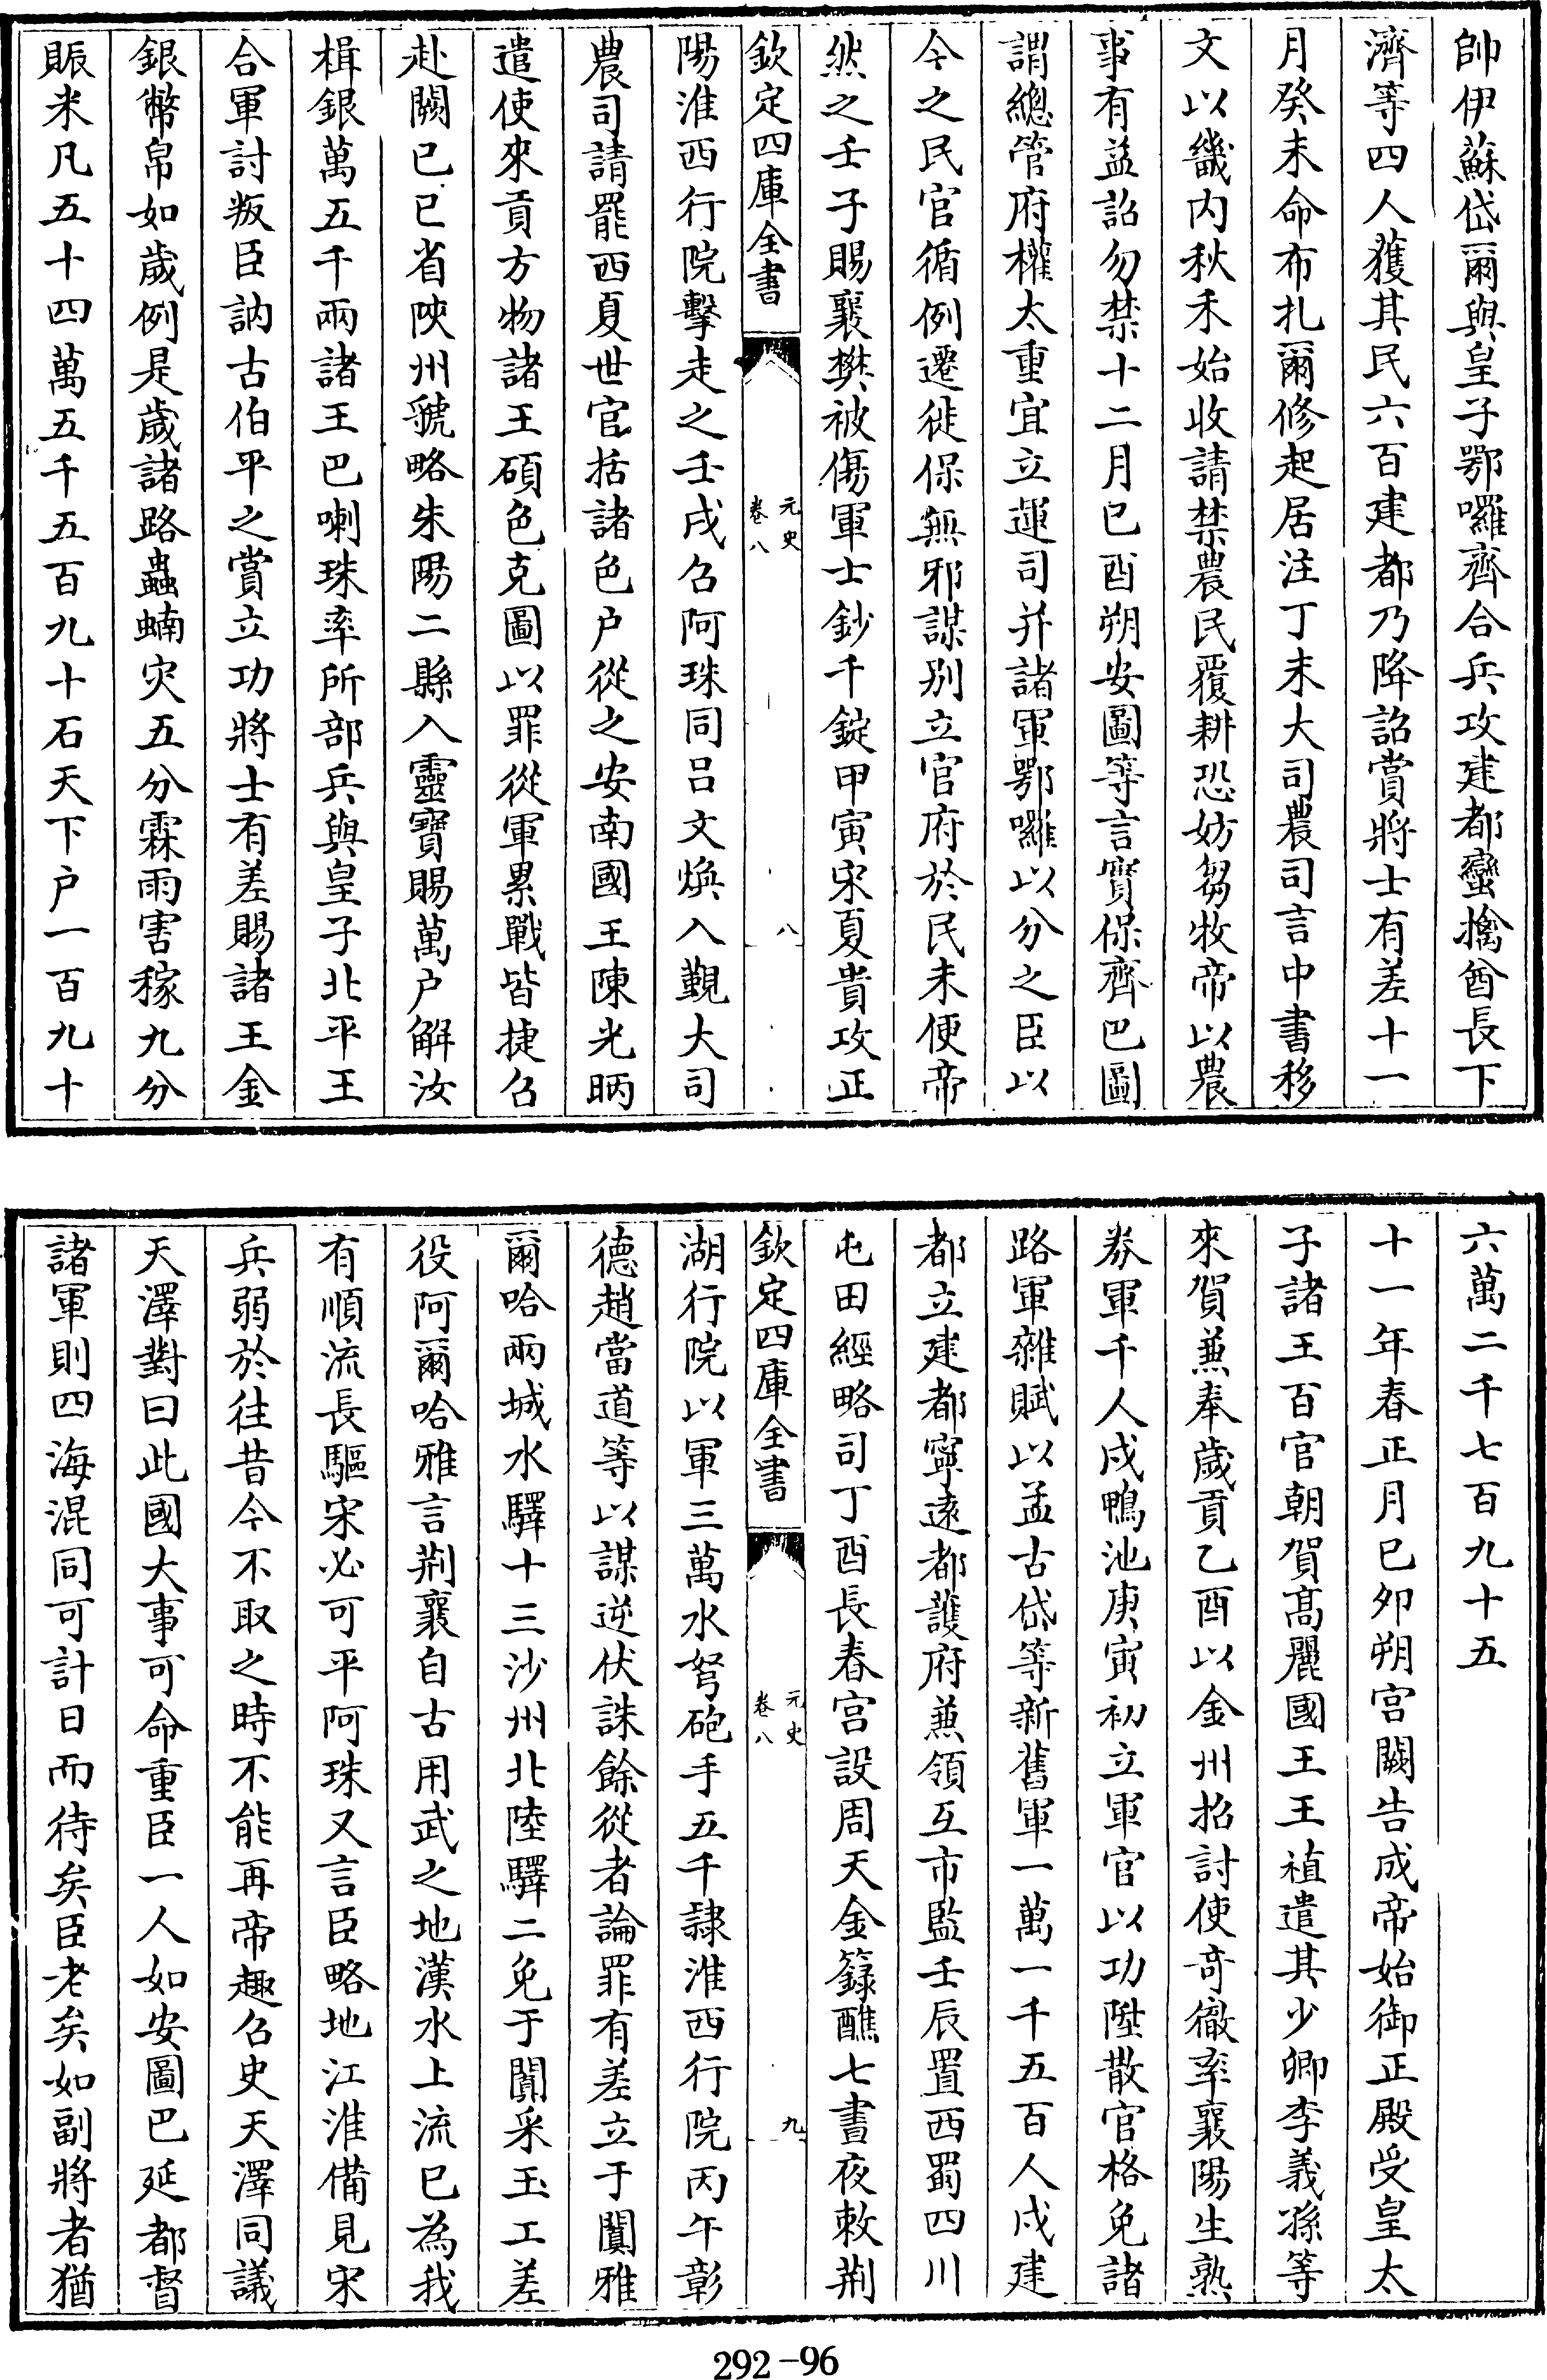 帥伊蘇岱爾與皇子鄂囉齊合兵攻建都蠻擒酋長下
濟等四人獲其民六百建都乃降詔賞將士有差十一
月癸未命布扎爾修起居注丁未大司農司言中書移
文以畿内秋禾始收請禁農民覆耕恐妨芻牧帝以農
事有益詔勿禁十二月已酉朔安圖等言實保齊巴圖
謂總管府權太重宜立運司并諸軍鄂囉以分之臣以
今之民官循例遷徙保無邪謀别立官府於民未便帝
然之壬子賜襄樊被傷軍士鈔千錠甲寅宋夏貴攻正
欽定四庫全書
元史
卷八
八
陽淮西行院擊走之壬戌召阿珠同呂文煥入覲大司
農司請罷西夏世官括諸色户從之安南國王陳光昞
遣使來貢方物諸王碩色克圖以罪從軍累戰皆捷召
赴闕已巳省陜州虢略朱陽二縣入靈寶賜萬户解汝
楫銀萬五千兩諸王巴喇珠率所部兵與皇子北平王
合軍討叛臣訥古伯平之賞立功將士有差賜諸王金
銀幣帛如歲例是歲諸路蟲蝻灾五分霖雨害稼九分
賑米凡五十四萬五千五百九十石天下户一百九十
六萬二千七百九十五
十一年春正月已卯朔宫闕告成帝始御正殿受皇太
子諸王百官朝賀髙麗國王王禃遣其少卿李義孫等
來賀兼奉歲貢乙酉以金州招討使竒徹率襄陽生熟
券軍千人戍鴨池庚寅初立軍官以功陞散官格免諸
路軍雜賦以孟古岱等新舊軍一萬一千五百人戍建
都立建都寧逺都護府兼領互市監壬辰置西蜀四川
屯田經略司丁酉長春宫設周天金籙醮七晝夜敕荆
欽定四庫全書
元史
卷八
九
湖行院以軍三萬水弩砲手五千隷淮西行院丙午彰
德趙當道等以謀逆伏誅餘從者論罪有差立于闐雅
爾哈兩城水驛十三沙州北陸驛二免于闐采玉工差
役阿爾哈雅言荆襄自古用武之地漢水上流已為我
有順流長驅宋必可平阿珠又言臣略地江淮備見宋
兵弱於徃昔今不取之時不能再帝趣召史天澤同議
天澤對曰此國大事可命重臣一人如安圖巴延都督
諸軍則四海混同可計日而待矣臣老矣如副將者猶
292-96